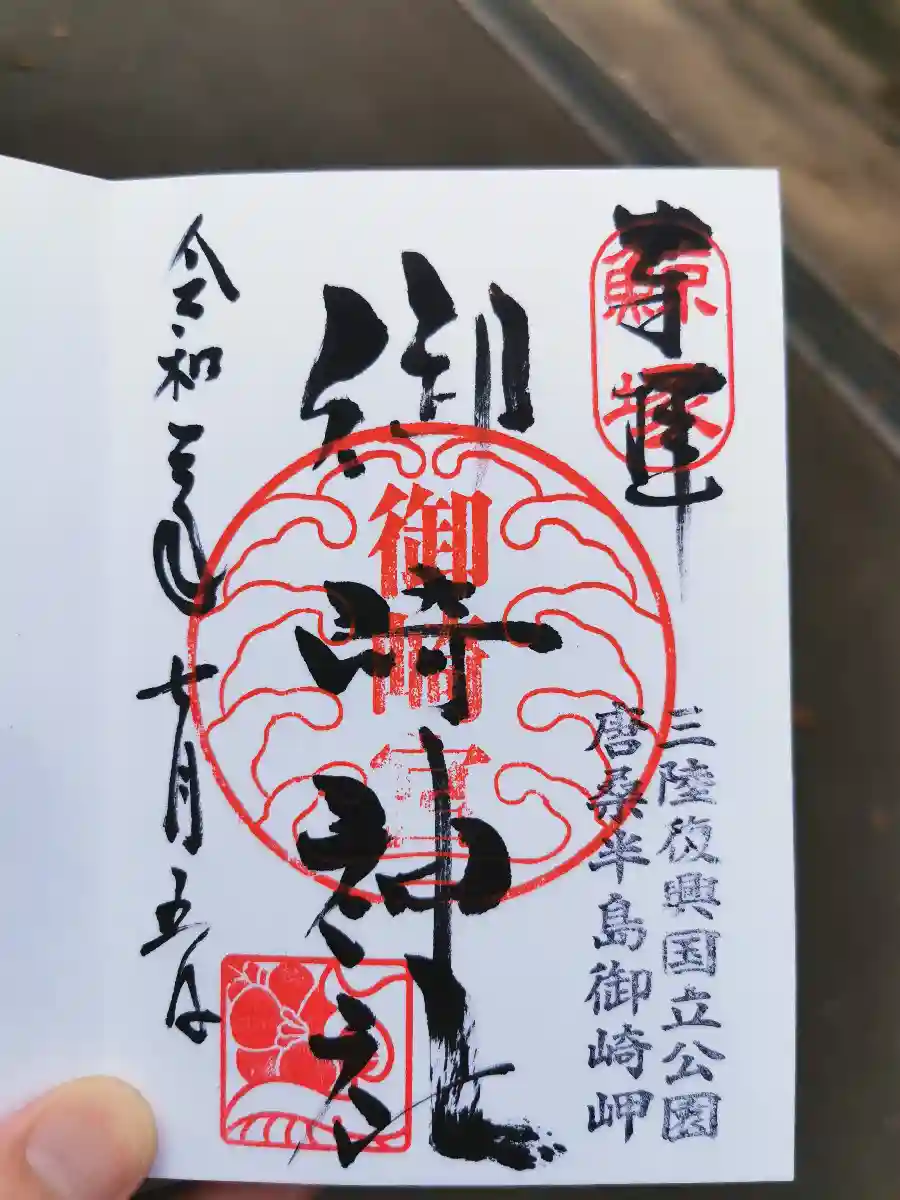 奉拝
鯨塚
三陸復興国立公園
唐桑半島御崎岬
御崎神社
御崎宮
令和三年七月五日